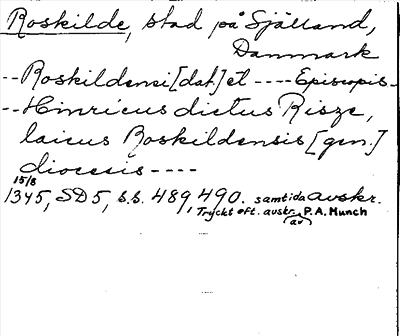 Roskilde, stad på Själland,
Danmark
-- Roskildensi [dat.] et ---- Episcopis --
-- Hinricus dictus Risze,
laicus Roskildensis [gen.]
diocesis ----
15/8
1345, SD 5, s.s. 489, 490. samtida avskr.
Tryckt eft. avskr. av P. A. Munch